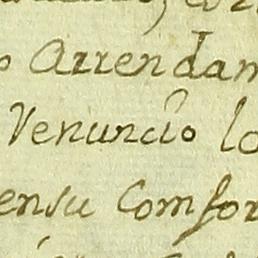 o Arrendam
Venuncio lo
ensu Comfor